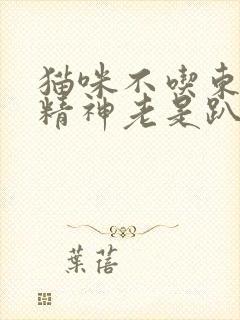 猫咪不喫東
精神老是趴
葉蓓